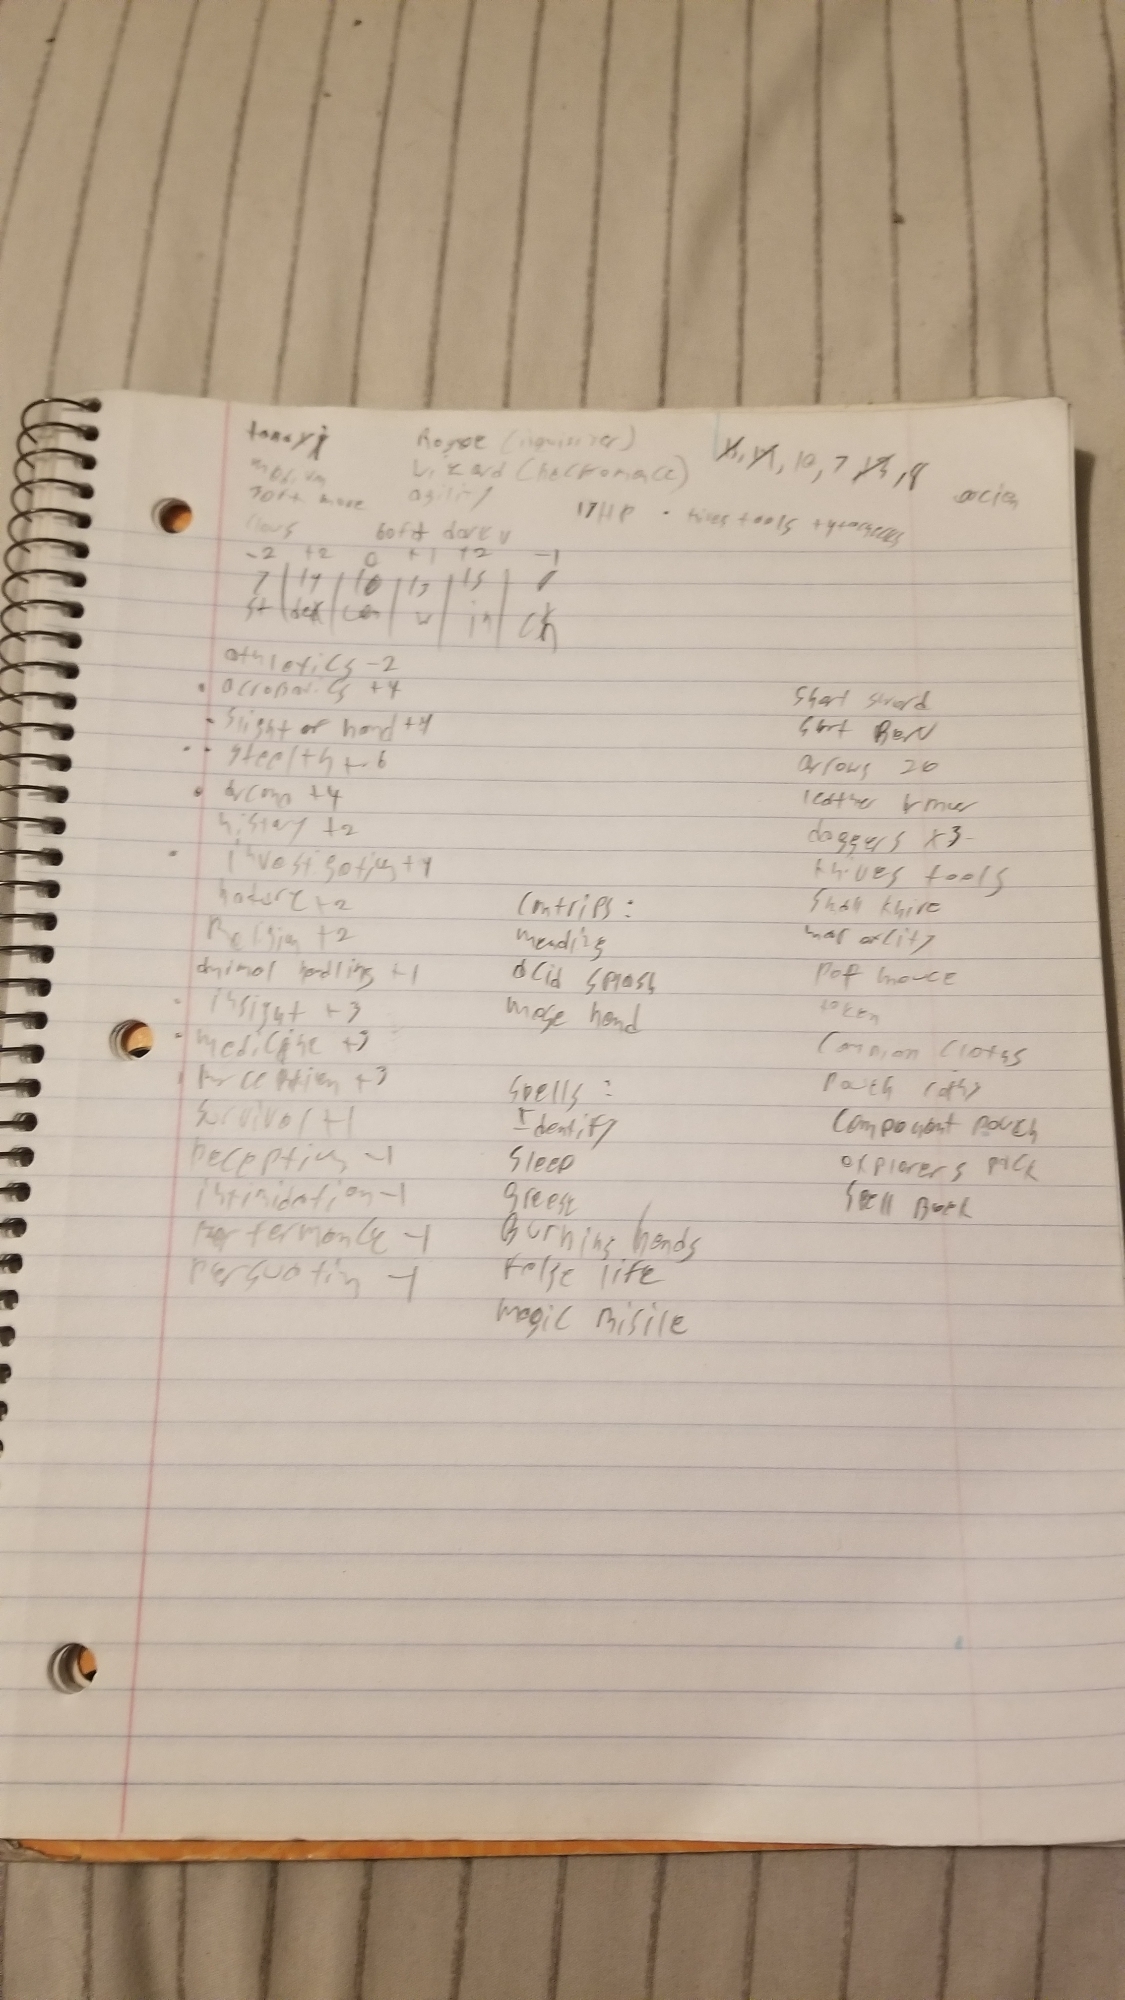 tonoxi
Rogue (inquisiter)
10, 7
medium
Wizard (necromance)
30ft move
agility
17HP
claws
60ft dark v
-2 +2 0 +1 +2 -1
7 14 10 13 15
st dex con w in Ch
athletics -2
acrobatics +4
slight of hand +4
stealth +6
arcana +4
history +2
investigation +4
nature +2
Religion +2
animal handling +1
insight +3
medicine +3
Perception +3
Survival +1
Deception -1
intimidation -1
Performance -1
persuation -1
Cantrips:
mending
acid splash
mage hand
Spells:
Identify
Sleep
Grease
Burning hands
false life
magic misile
Short sword
short Bow
arrows 20
leather
daggers x3
thives tools
small knife
map of city
pet mouce
token
Common Cloths
Component pouch
explorers pack
Spell Book